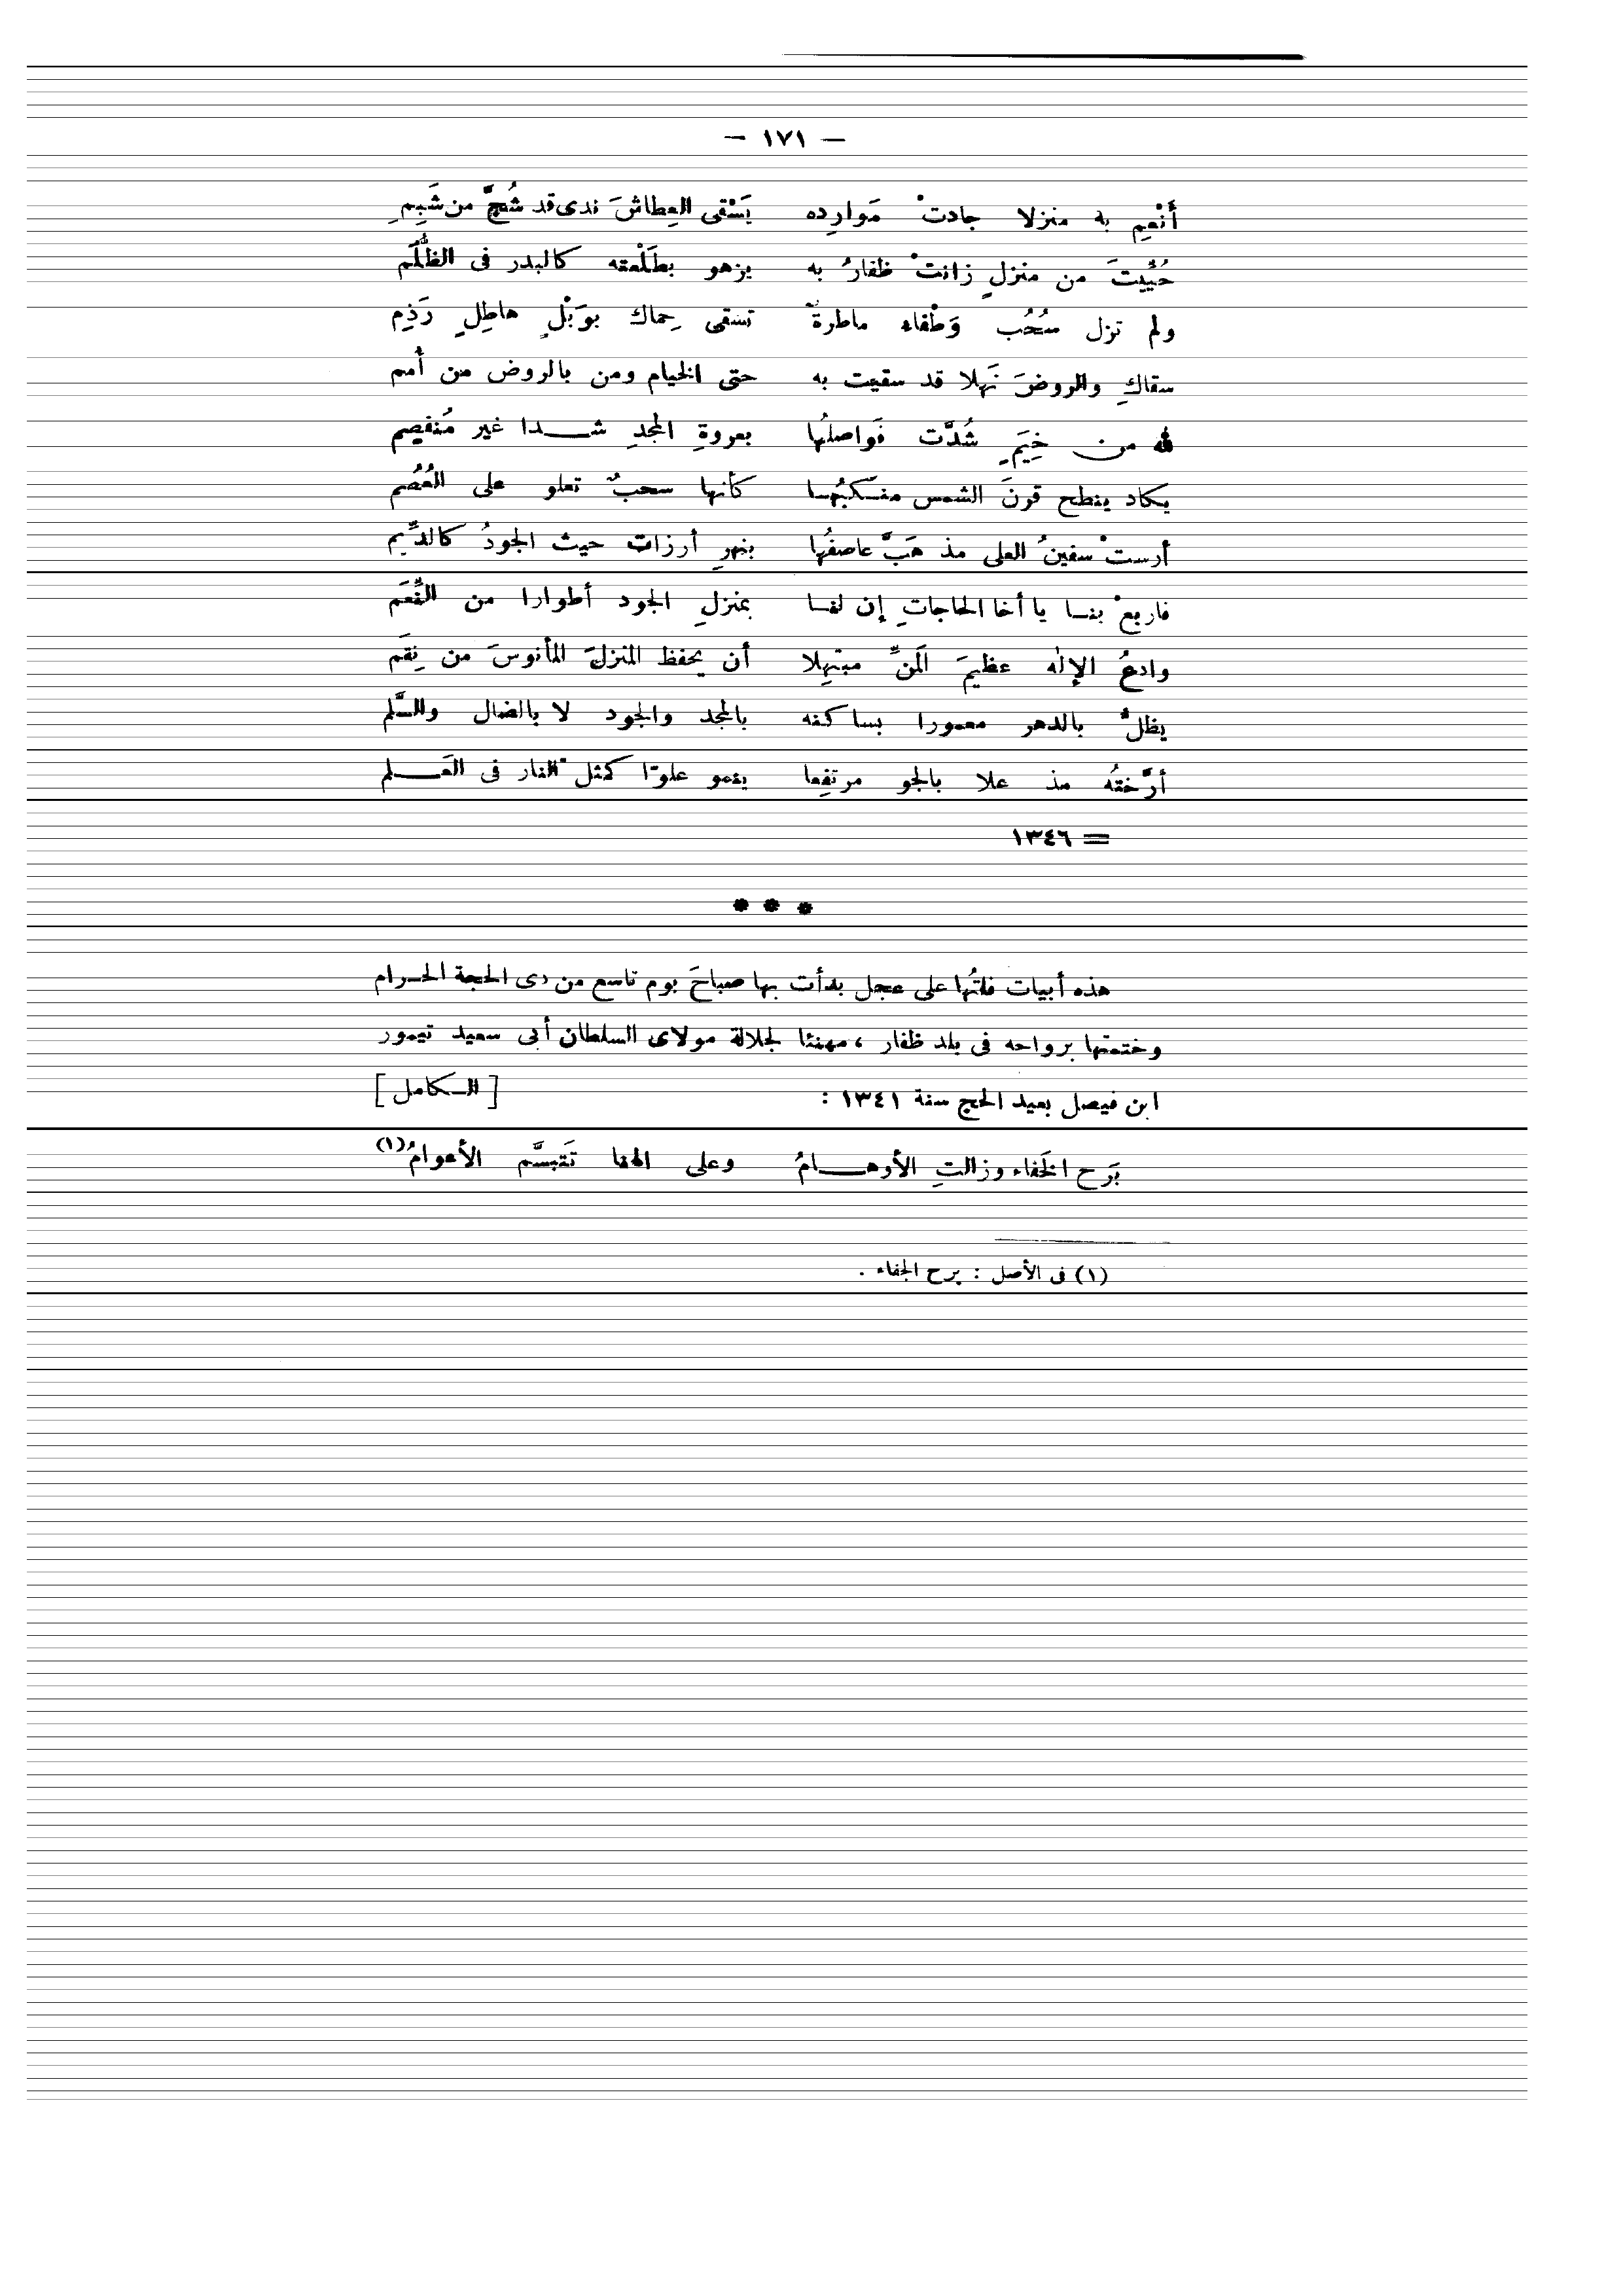 — ١٧١ —
أَنْعِمِ به منزلا جادتْ مَوارِده يَسْقى العِطاشَ ندى قد شُجَّ من شَبِمِ
حُيِّيتَ من منزلٍ زانتْ ظفارُ به يزهو بطَلْعته كالبدر فى الظُّلَم
ولم تزل سُحُب وَطْفاء ماطرةٌ تسقى حِماك بوَبْلٍ هاطِلٍ رَذِم
سقاكِ والروضَ نَهلا قد سقيت به حتى الخيام ومن بالروض من أَمم
لله من خِيَمٍ شُدَّت فَواصلُها بعروةِ المجدِ شدا غير مُنفصِم
يكاد ينطح قرنَ الشمس منكبُها كأنها سحبٌ تعلو على العُصُم
أرستْ سفينُ العلى مذ هَبَّ عاصفُها بنهرِ أرزات حيث الجودُ كالدِّيم
فاربعْ بنا يا أخا الحاجاتِ إن لنا بمنزلِ الجود أطوارا من النِّعَم
وادعُ الإلٰه عظيمَ المَنِّ مبتهِلا أن يحفظ المنزلَ المأنوسَ من نِقَم
يظلُّ بالدهر معمورا بساكنه بالمجد والجود لا بالضال والسَّلم
أرَّختُه مذ علا بالجو مرتفِعا ينمو علوّا كمثل النار فى العَلم
= ١٣٤٦
* * *
هذه أبيات قلتُها على عجل بدأت بها صباحَ يوم تاسع من ذى الحجة الحرام
وختمتها برواحه فى بلد ظفار ، مهنئا لجلالة مولاى السلطان أبى سعيد تيمور
ابن فيصل بعيد الحج سنة ١٣٤١ : [ الكامل ]
بَرح الخَفاء وزالتِ الأوهامُ وعلى الهنا تَتبسَّم الأعوامُ(١)
(١) فى الأصل : برح الجفاء .